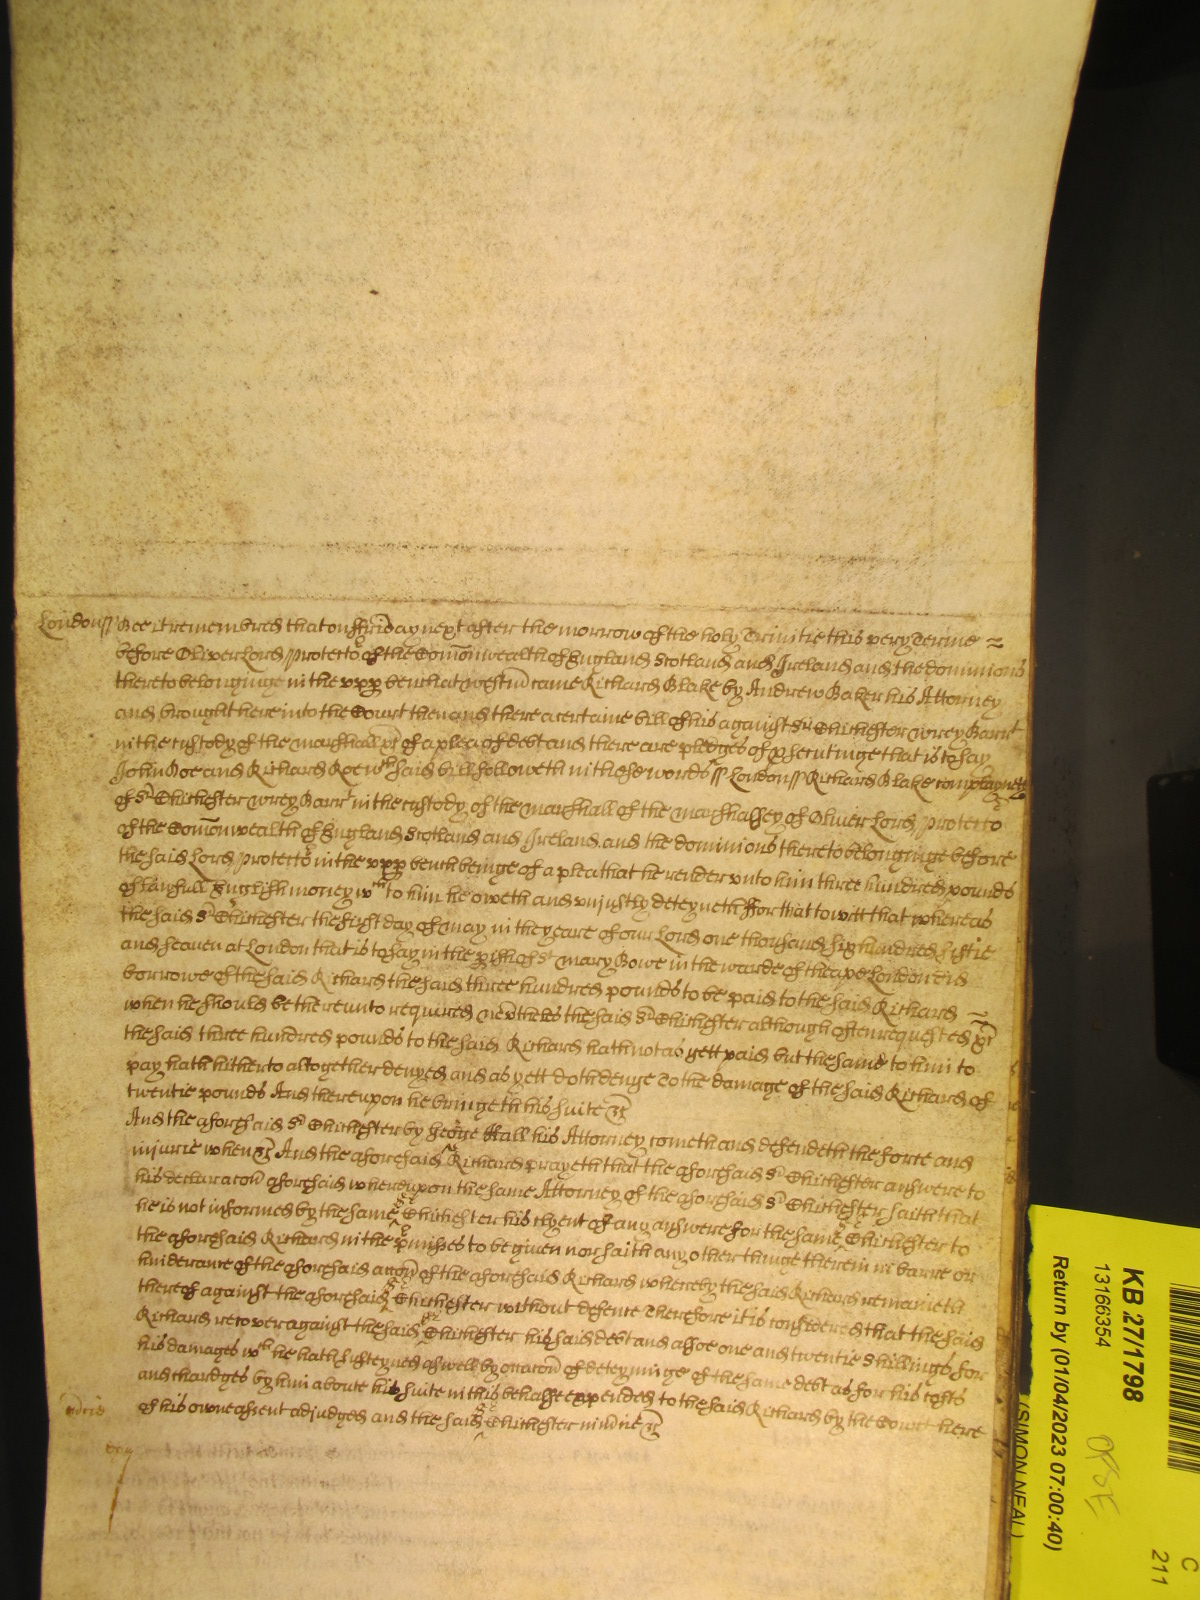 London ss Bee it remembred that on ffriday next after the morrow of the holy Trinitie this very Terme
before Oliver Lord Protector of the Com̄onwealth of England Scotland and Ireland and the dominions
thereto belonginge in the vpp bench at westm̄ came Richard Blake by Andrew Baker his Attorney
and brought here into the Court then and there a certaine bill of his against Sr Chichester Wrey Barrt
in the custody of the marshall &c of a plea of debt and there are pledges of psecutinge that is to say
John Doe and Richard Roe wch said bill followeth in these words ss London ss Richard Blake complayneth
of Sr Chichester Wrey Barrt in the custody of the marshall of the marshalsey of Oliver Lord Protector
of the Com̄onwealth of England Scotland and Ireland and the dominions thereto belonginge before
the said Lord Protector in the vpp bench beinge of a plea that he render vnto him three hundred pounds
of lawfull English money wch to him he oweth and vnjustly deteyneth ffor that to witt that whereas
the said Sr Chichester the first day of may in the yeare of our Lord one thousand six hundred fiftie
and seaven at London that is to say in the pish of St mary Bowe in the warde of Cheape London did
borrowe of the said Richard the said three hundred pounds to be paid to the said Richard
when he should be thereunto required nevtheles the said Sr Chichester although often requested &c
the said three hundred pounds to the said Richard hath not as yett paid but the same to him to
pay hath hitherto altogether denyed and as yett doth denye To the damage of the said Richard of
twentie pounds And thereupon he bringeth his suite &c
And the aforesaid Sr Chichester by George Hall his Attorney cometh and defendeth the force and
injurie when &c And the aforesaid Richard prayeth that the aforesaid Sr Chichester answere to
his declaracōn aforesaid whereupon the same Attorney of the aforesaid Sr Chichester saith that
he is not informed by the same Sr Chichester his clyent of any answere for the same Sr Chichester to
the aforesaid Richard in the pmisses to be given nor saith any other thinge therein in barre or
hinderance of the aforesaid accōn of the aforesaid Richard whereby the said Richard remaineth
thereof against the aforesaid Sr Chichester without defence Therefore it is considered that the said
Richard recover against the said Sr Chichester his said debt and alsoe one and twentie shillings for
his damages wch he hath susteyned aswell by occacōn of deteyninge of the same debt as for his costs
and chardges by him aboute his suite in this behalfe expended to the said Richard by the Court here
of his owne assent adjudged and the said Sr Chichester in m̄cie &c
m̄cie
KB 27/1798
13166354
Return by (01/04/2023 07:00:40)
(SIMON NEAL)
C
211